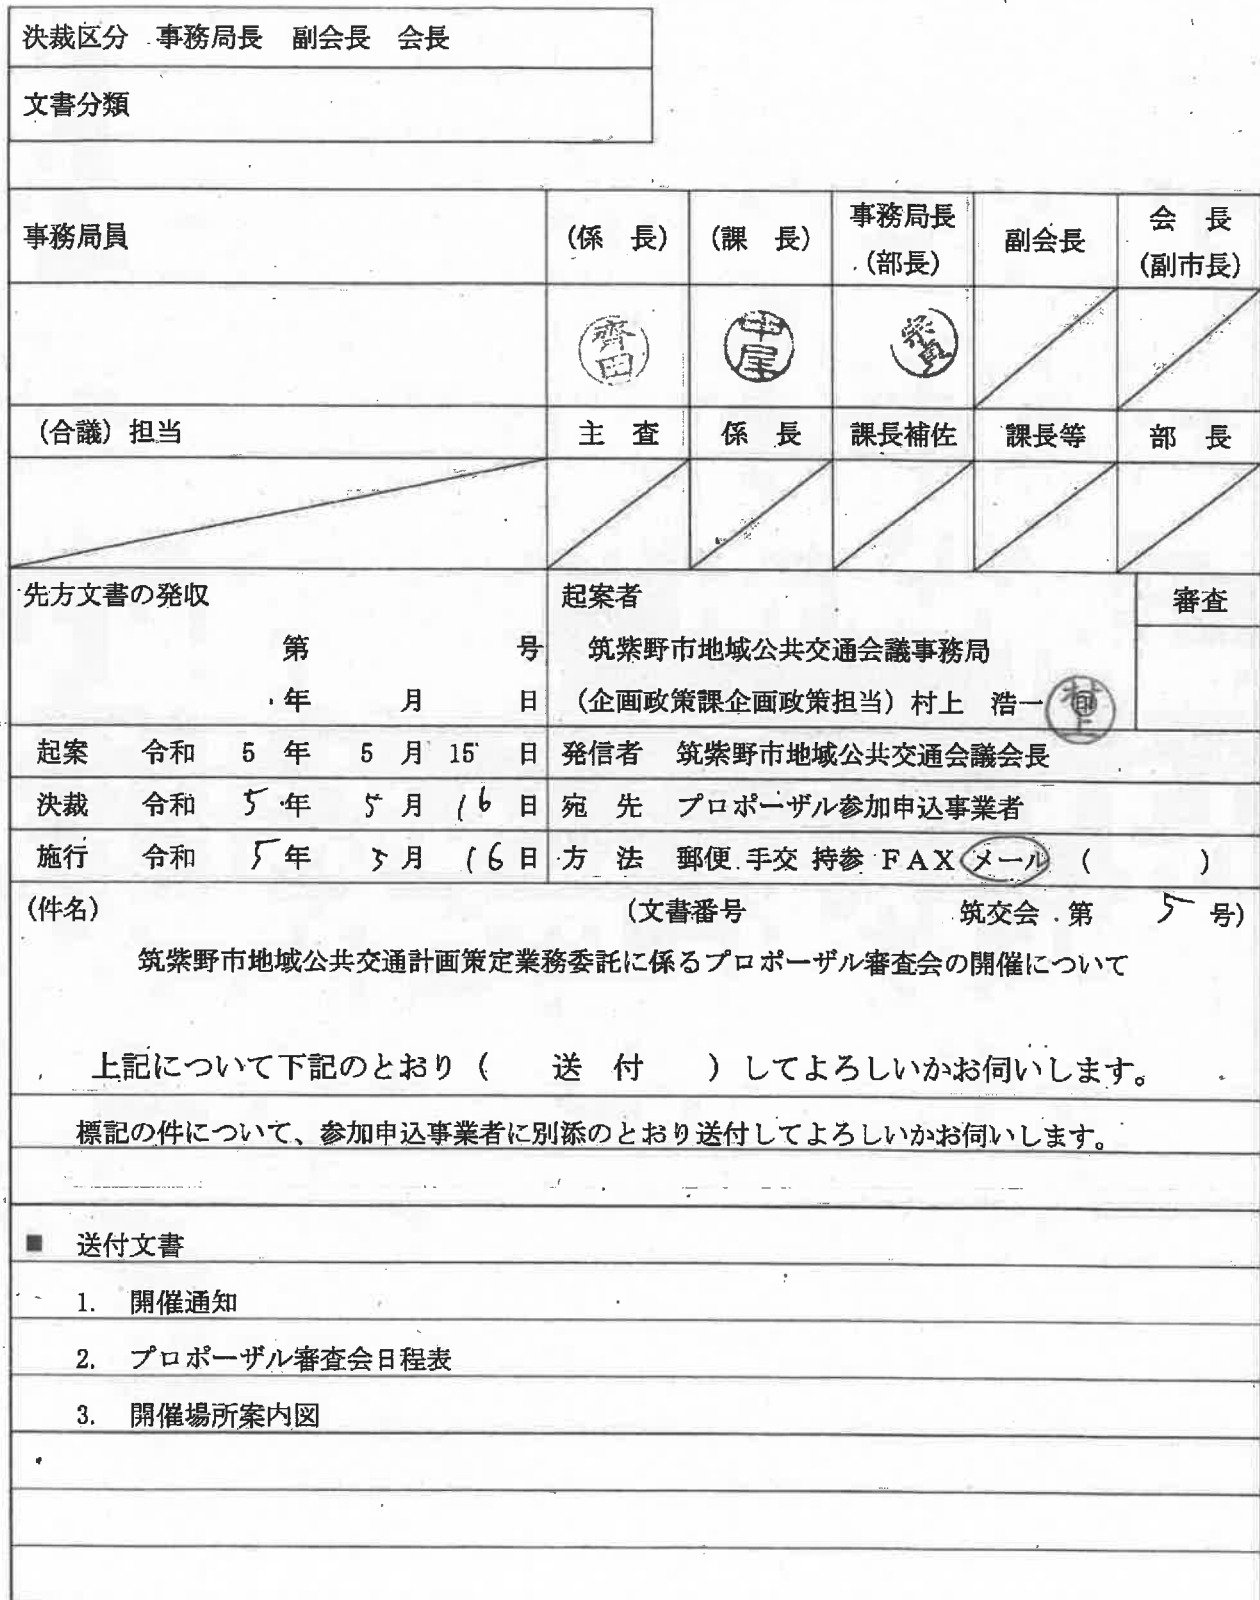 決裁区分 事務局長 副会長 会長
文書分類
事務局員 (係 長) (課 長) 事務局長 (部長) 副会長 会 長 (副市長)
齊田 中尾
(合議) 担当 主 査 係 長 課長補佐 課長等 部 長
先方文書の発収 起案者 審査
第 号 筑紫野市地域公共交通会議事務局
年 月 日 (企画政策課企画政策担当) 村上 浩一 印 村上
起案 令和 5 年 5 月 15 日 発信者 筑紫野市地域公共交通会議会長
決裁 令和 5 年 5 月 16 日 宛 先 プロポーザル参加申込事業者
施行 令和 5 年 5 月 16 日 方 法 郵便 手交 持参 FAX メール ( )
(件名) (文書番号 筑交会 第 5 号)
筑紫野市地域公共交通計画策定業務委託に係るプロポーザル審査会の開催について
上記について下記のとおり ( 送 付 ) してよろしいかお伺いします。
標記の件について、参加申込事業者に別添のとおり送付してよろしいかお伺いします。
■ 送付文書
1. 開催通知
2. プロポーザル審査会日程表
3. 開催場所案内図